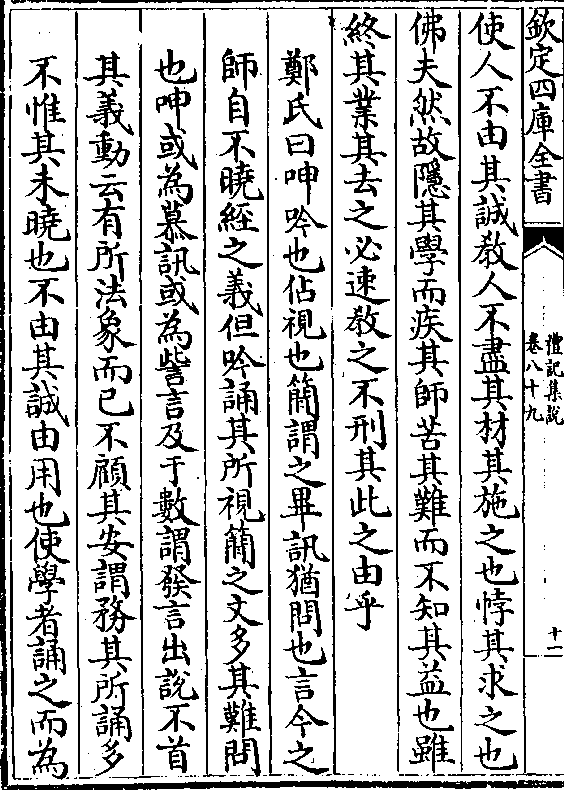 欽定四庫全書
禮記集說
卷八十九
十一
使人不由其誠教人不盡其材其施之也悖其求之也
佛夫然故隱其學而疾其師苦其難而不知其益也雖
終其業其去之必速教之不刑其此之由乎
鄭氏曰呻吟也佔視也簡謂之畢訊猶問也言今之
師自不曉經之義但吟誦其所視簡之文多其難問
也呻或為慕訊或為訾言及于數謂發言出說不首
其義動云有所法象而已不顧其安謂務其所誦多
不惟其未曉也不由其誠由用也使學者誦之而為